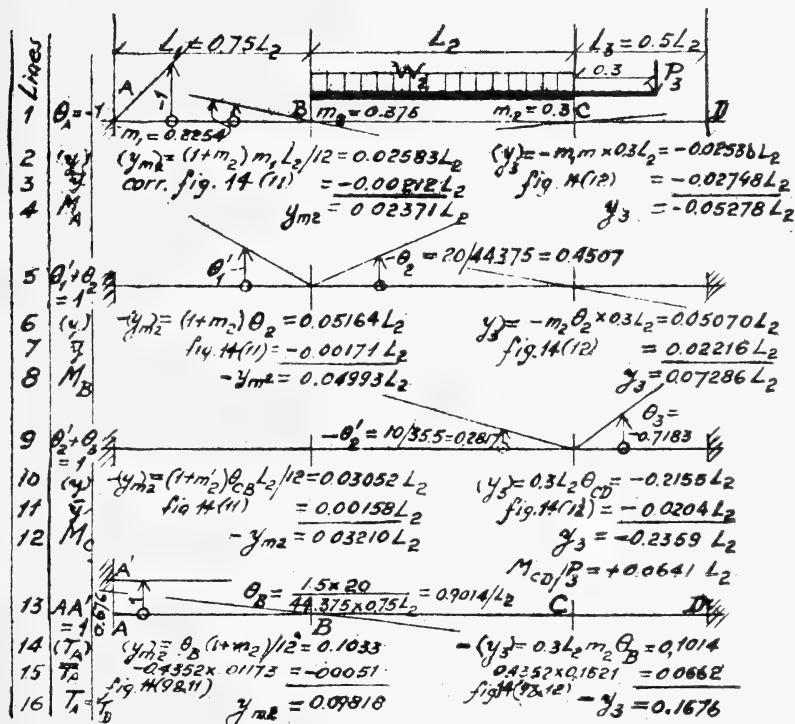 Lines
L₁ = 0.75L₂ L₂ L₃ = 0.5L₂
W₂ 0.3 P₃
1 θ_A = -1 A 1 B m₂ = 0.375 m₂ = 0.3 C D
m₁ = 0.2254
2 (y) (y_m2) = (1+m₂) m₁ L₂/12 = 0.02583L₂ (y₃) = -m₁m × 0.3L₂ = -0.02530L₂
3 ȳ corr. fig. 14 (11) = -0.00212L₂ fig. 14(12) = -0.02748L₂
4 M_A y_m2 = 0.02371L₂ y₃ = -0.05278L₂
5 θ₁'+θ₂ = 1 θ₁' -θ₂ = 20/44.375 = 0.4507
6 (y) -(y_m2) = (1+m₂) θ₂ = 0.05164L₂ y₃) = -m₂θ₂ × 0.3L₂ = 0.05070L₂
7 ȳ fig. 14(11) = -0.00171L₂ fig. 14(12) = 0.02216L₂
8 M_B - y_m2 = 0.04993L₂ y₃ = 0.07286L₂
9 θ₂'+θ₃ = 1 -θ₂' = 10/35.5 = 0.2817 θ₃ = -0.7183
10 (y) -(y_m2) = (1+m₂')θ_CB L₂/12 = 0.03052L₂ (y₃) = 0.3L₂θ_CD = -0.2155L₂
11 ȳ fig 14(11) = 0.00158L₂ fig. 14(12) = -0.0204L₂
12 M_C - y_m2 = 0.03210L₂ y₃ = -0.2359L₂
M_CD/P₃ = +0.0641L₂
13 AA' = 1 0.676 A' 1 A θ_B = 1.5×20 / 44.375×0.75L₂ = 0.9014/L₂ B C D
14 (T_A) (y_m2) = θ_B(1+m₂)/12 = 0.1033 -(y₃) = 0.3L₂m₂θ_B = 0,1014
15 T̄_A -0.4352×.01173 = -00051 0.4352×0.1521 = 0.0662
fig. 14(9&11) fig 14(9&12)
16 T_A = T_B y_m2 = 0.09818 - y₃ = 0.1676